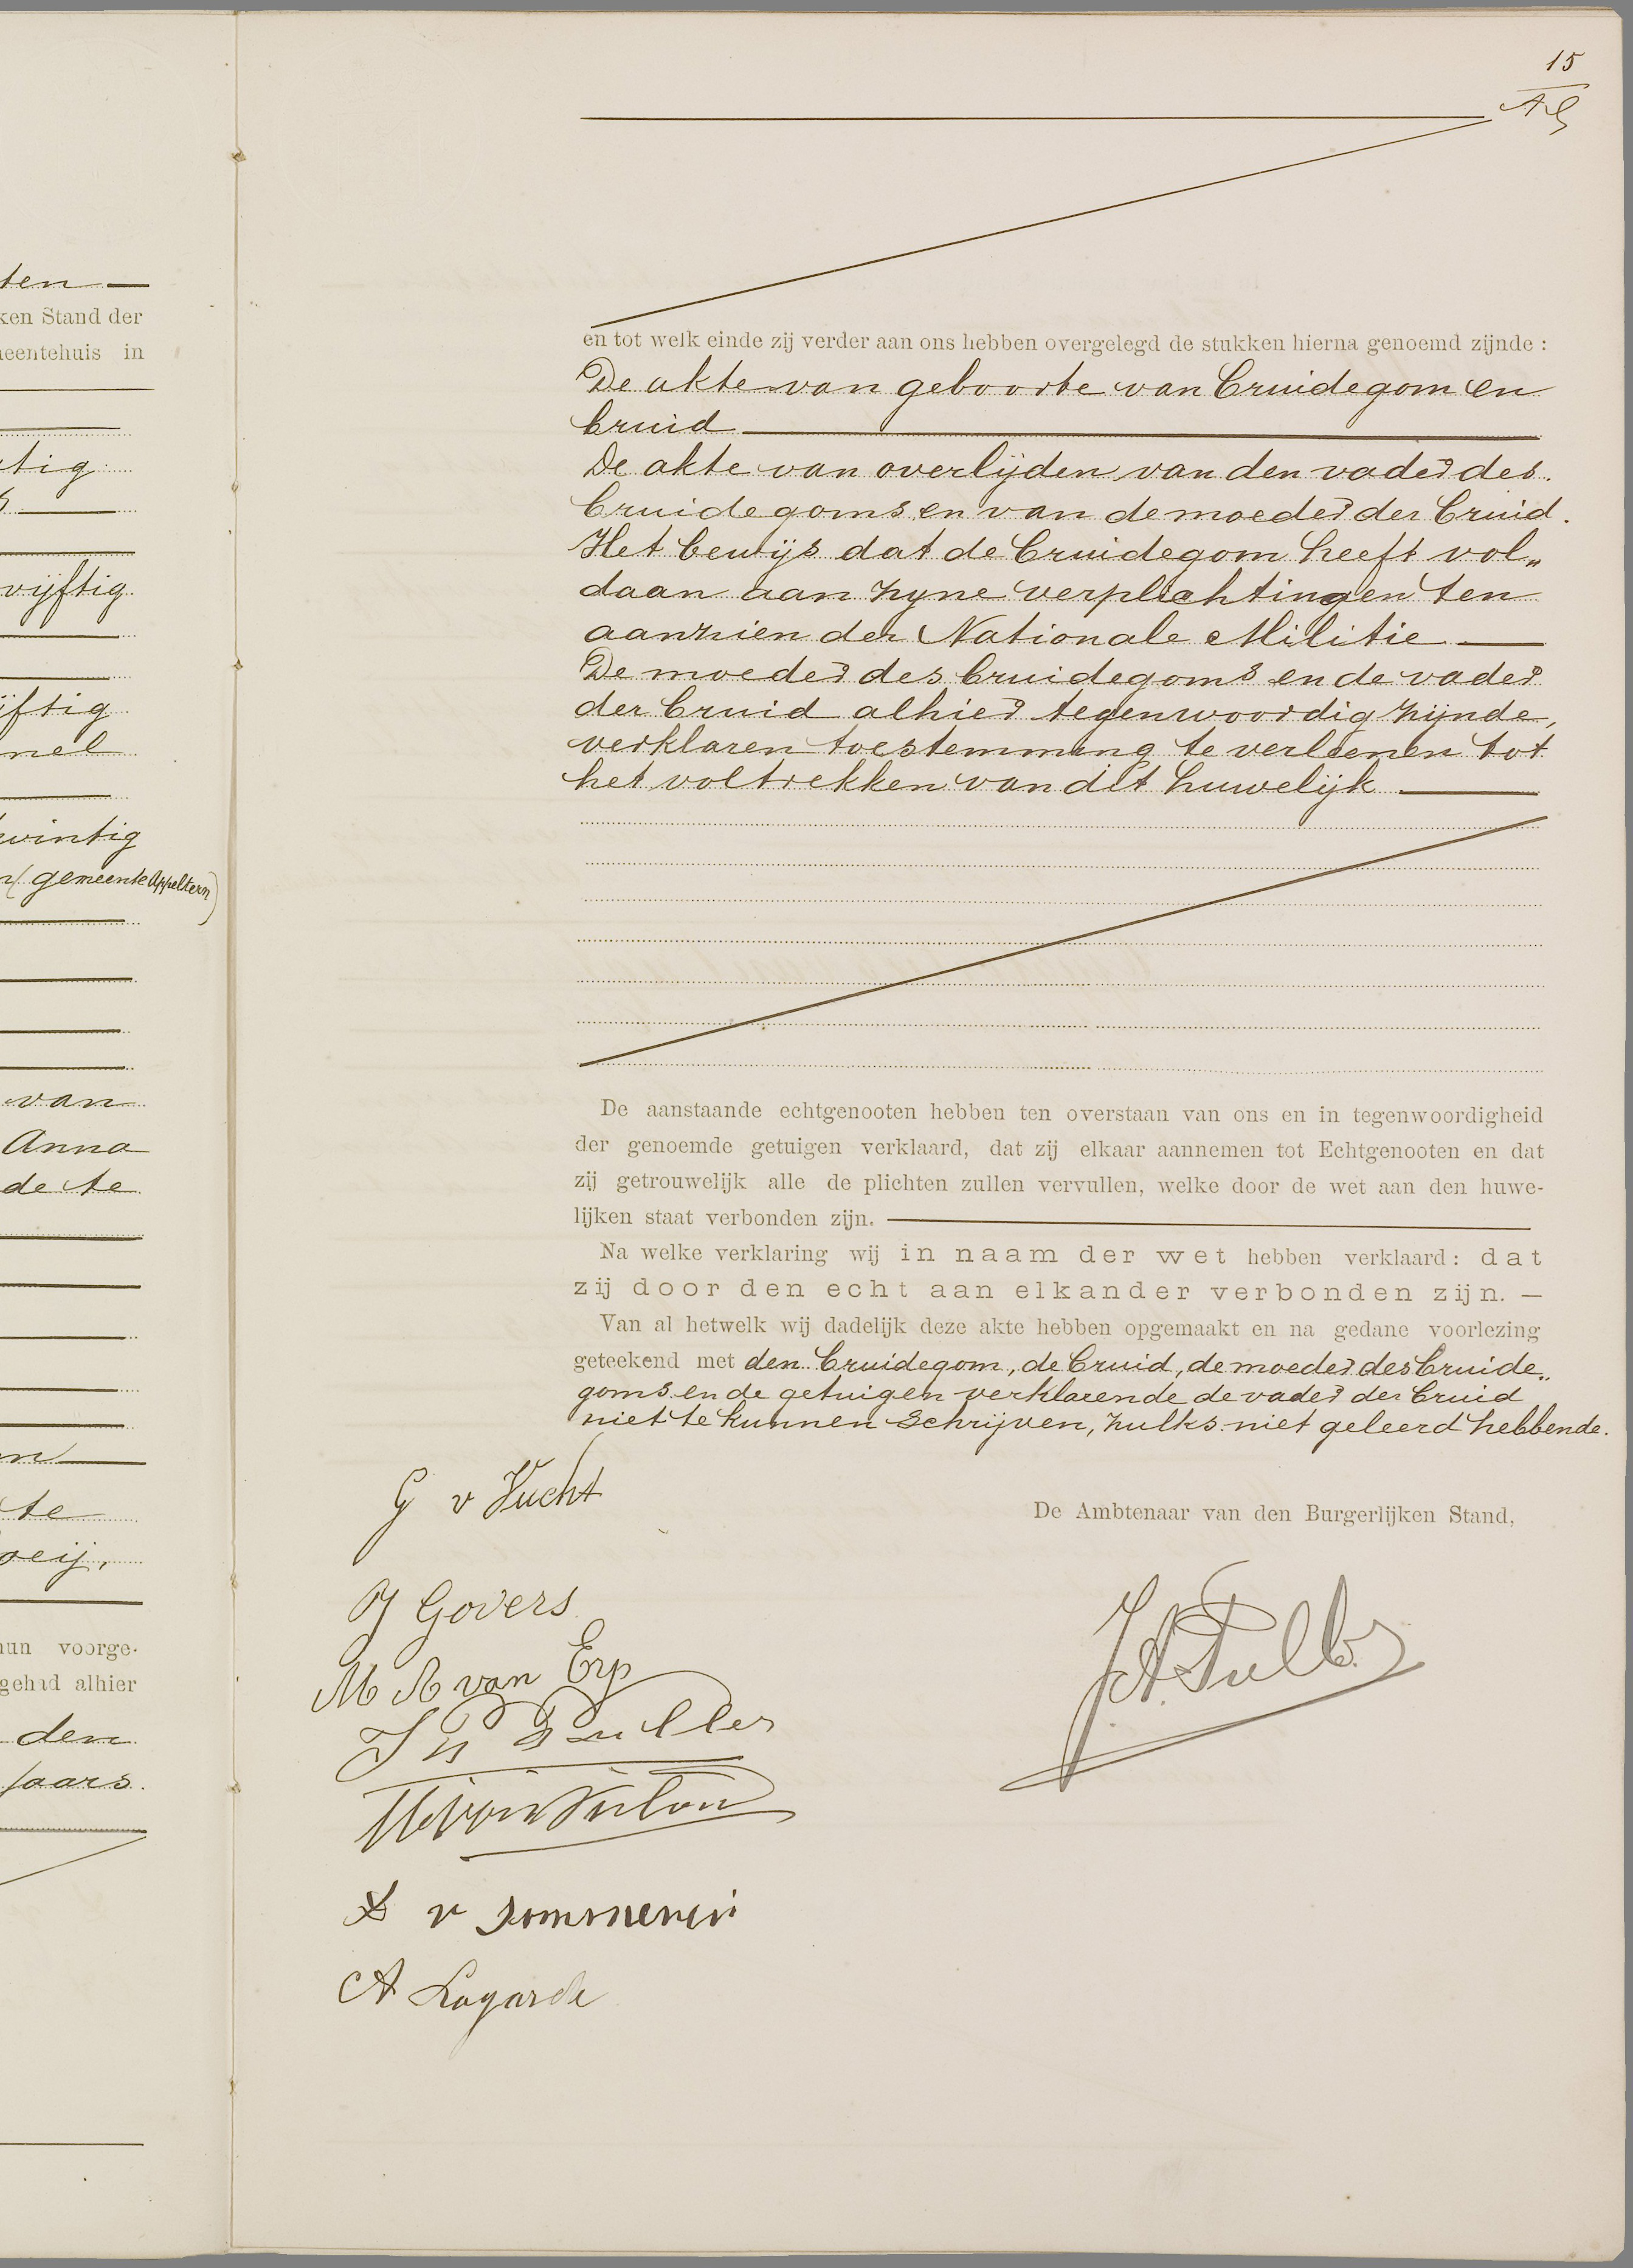 ten
ken Stand der
eentehuis in
tig
vijftig
ijftig
nel
wintig
n (gemeente Appeltern)
van
Anna
de te
te
oeij,
hun voorge-
gehad alhier
den
jaars.
15
en tot welk einde zij verder aan ons hebben overgelegd de stukken hierna genoemd zijnde :
De akte van geboorte van bruidegom en
bruid
De akte van overlijden van den vader des
bruidegoms en van de moeder der bruid.
Het bewijs dat de bruidegom heeft vol„
daan aan zyne verplichtingen ten
aanzien der Nationale Militie
De moeder des bruidegoms en de vader
der bruid alhier tegenwoordig zijnde,
verklaren toestemming te verleenen tot
het voltrekken van dit huwelijk
De aanstaande echtgenooten hebben ten overstaan van ons en in tegenwoordigheid
der genoemde getuigen verklaard, dat zij elkaar aannemen tot Echtgenooten en dat
zij getrouwelijk alle de plichten zullen vervullen, welke door de wet aan den huwe-
lijken staat verbonden zijn.
Na welke verklaring wij in naam der wet hebben verklaard: dat
zij door den echt aan elkander verbonden zijn. —
Van al hetwelk wij dadelijk deze akte hebben opgemaakt en na gedane voorlezing
geteekend met den bruidegom, de bruid, de moeder des bruide„
goms en de getuigen verklarende de vader der bruid
niet te kunnen schrijven, zulks niet geleerd hebbende.
G v Vucht
De Ambtenaar van den Burgerlijken Stand,
J Govers
M A van Erp
v sommeren
A Lagarde